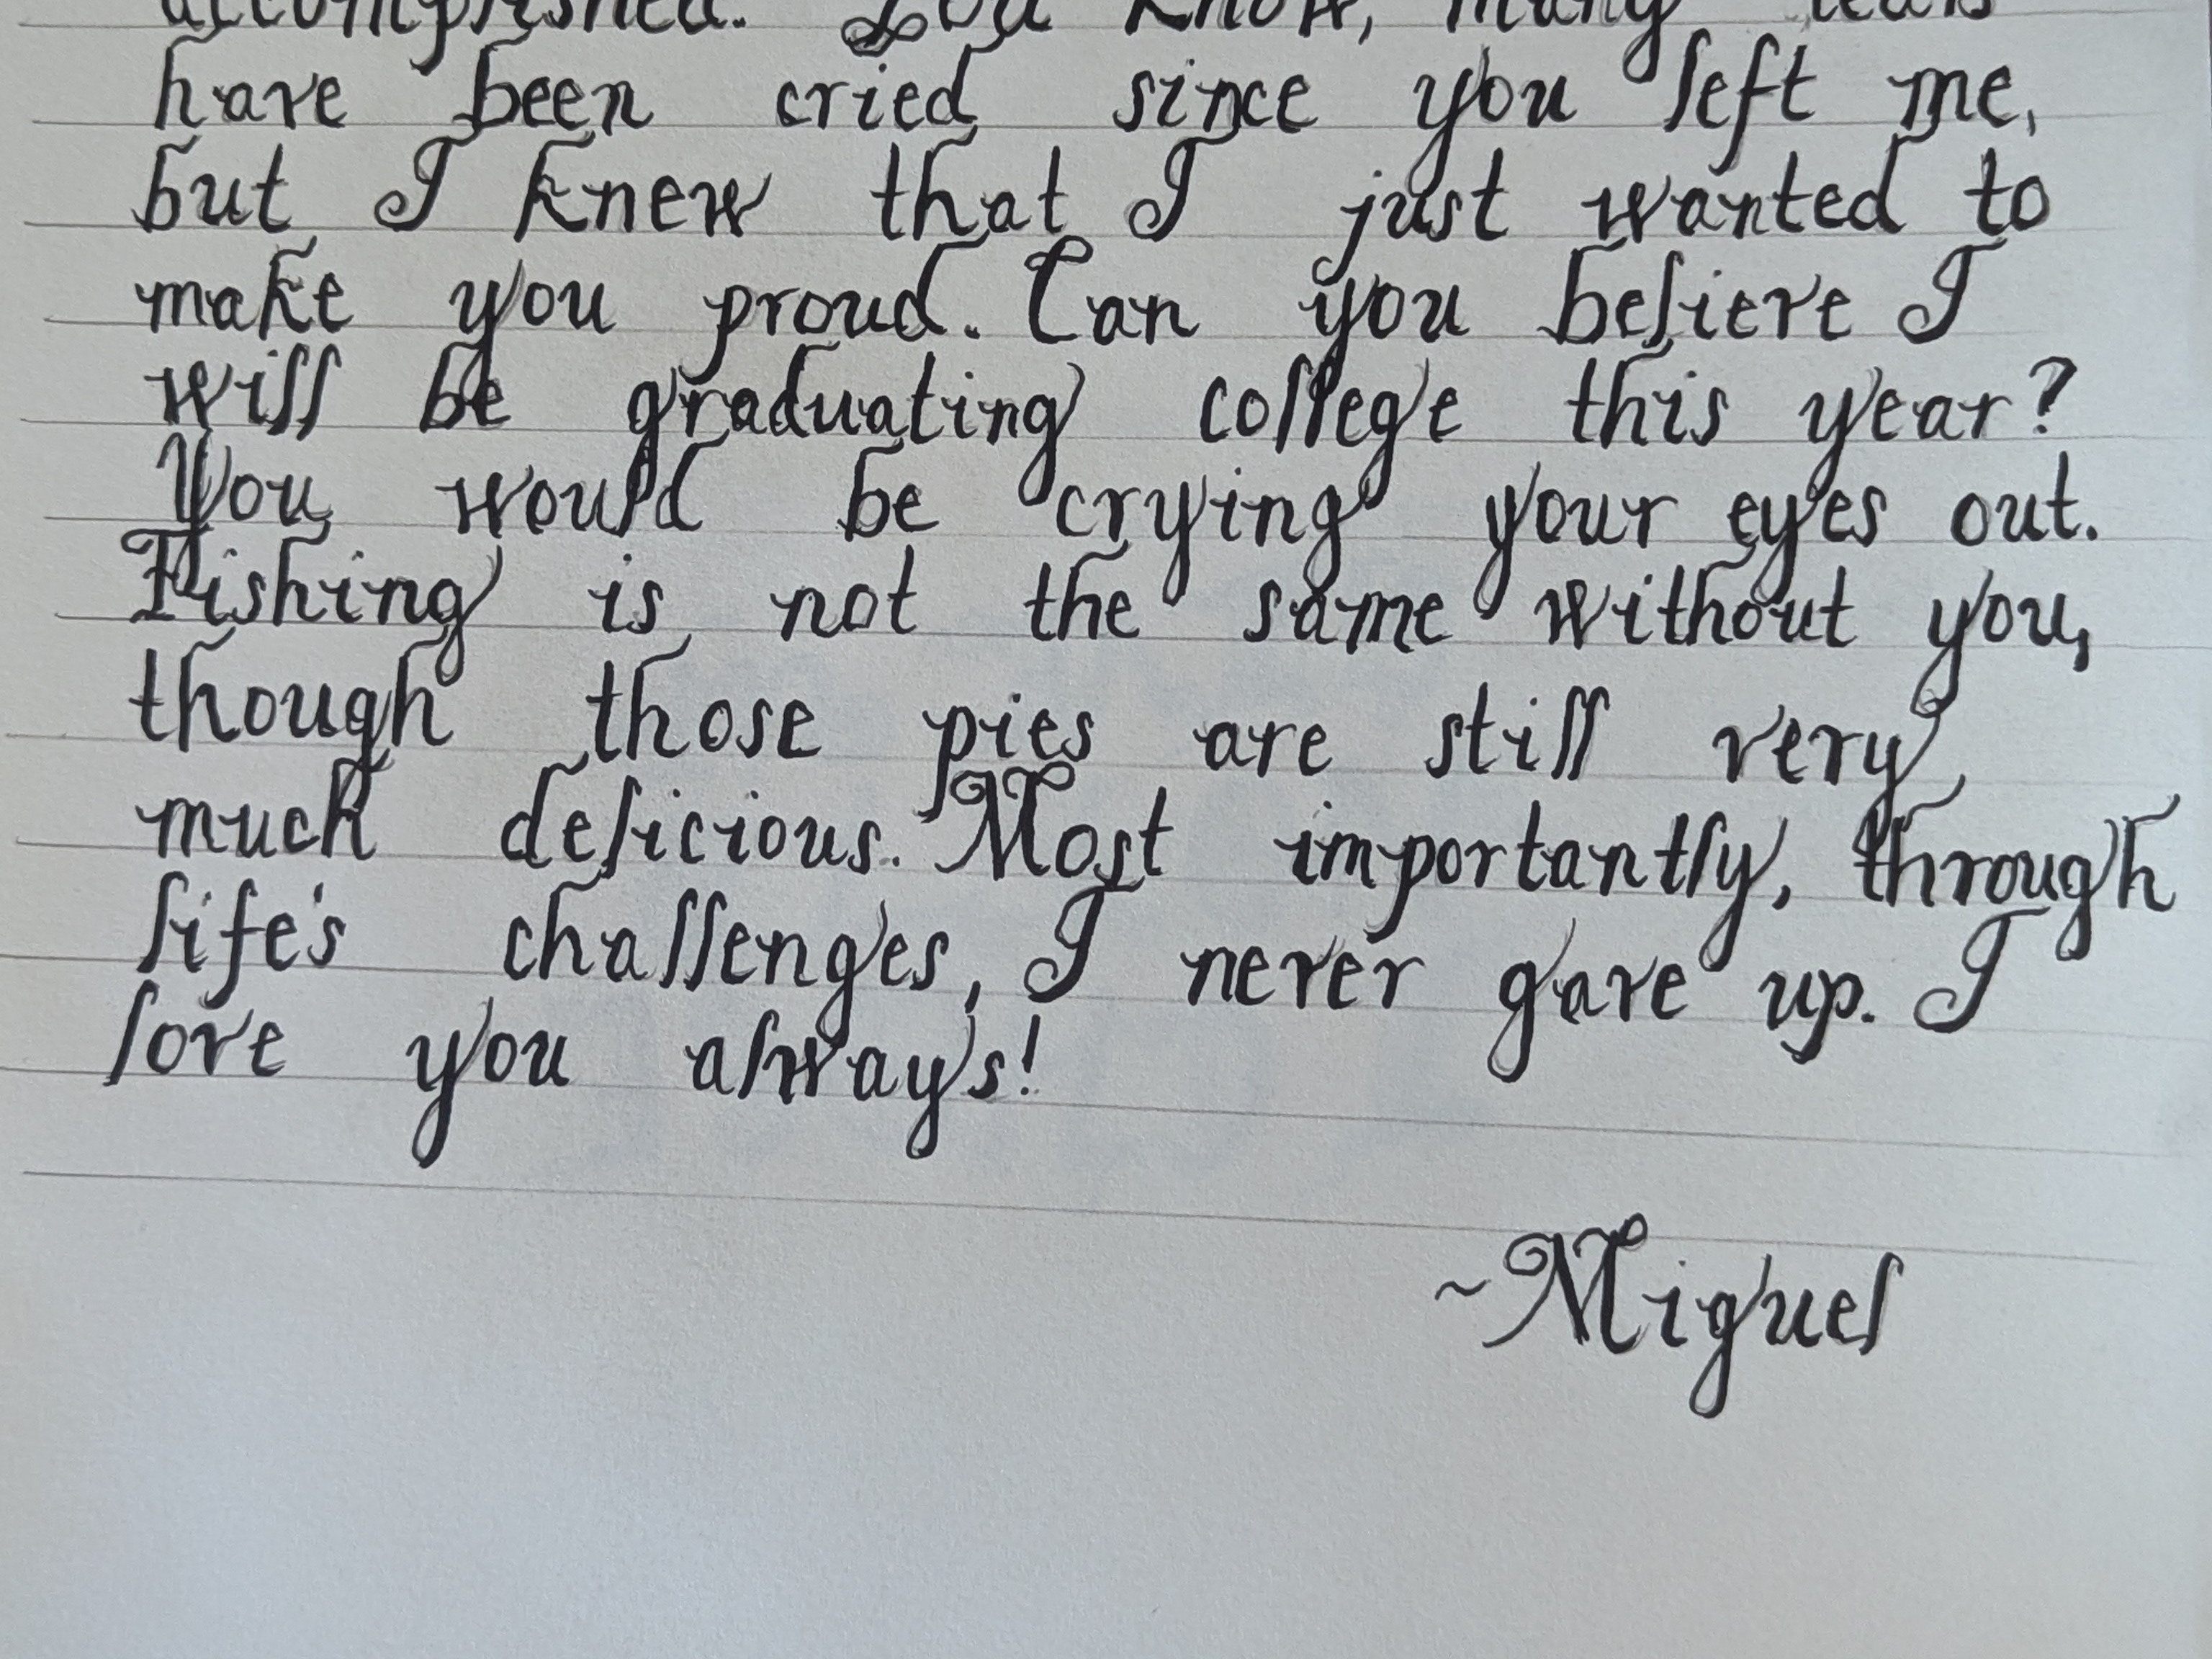 accomplished. You know, many tears
have been cried since you left me,
but I knew that I just wanted to
make you proud. Can you believe I
will be graduating college this year?
You would be crying your eyes out.
Fishing is not the same without you,
though those pies are still very
much delicious. Most importantly, through
life's challenges, I never gave up. I
love you always!
~Miguel